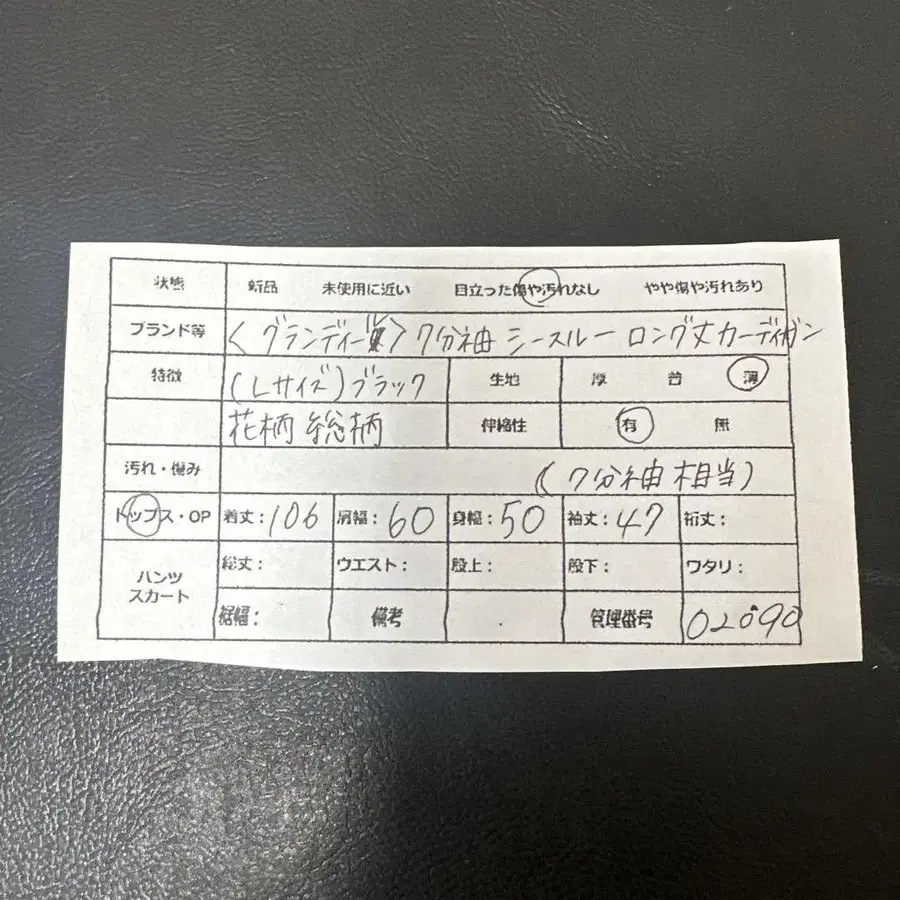 状態 新品 未使用に近い 目立った傷や汚れなし やや傷や汚れあり
ブランド等 〈グランディール〉7分袖 シースルー ロング丈カーディガン
特徴 (Lサイズ)ブラック 生地 厚 普 薄
花柄 総柄 伸縮性 有 無
汚れ・傷み (7分袖相当)
トップス・OP 着丈:106 肩幅:60 身幅:50 袖丈:47 裄丈:
パンツ スカート 総丈: ウエスト: 股上: 股下: ワタリ:
裾幅: 備考 管理番号 02090